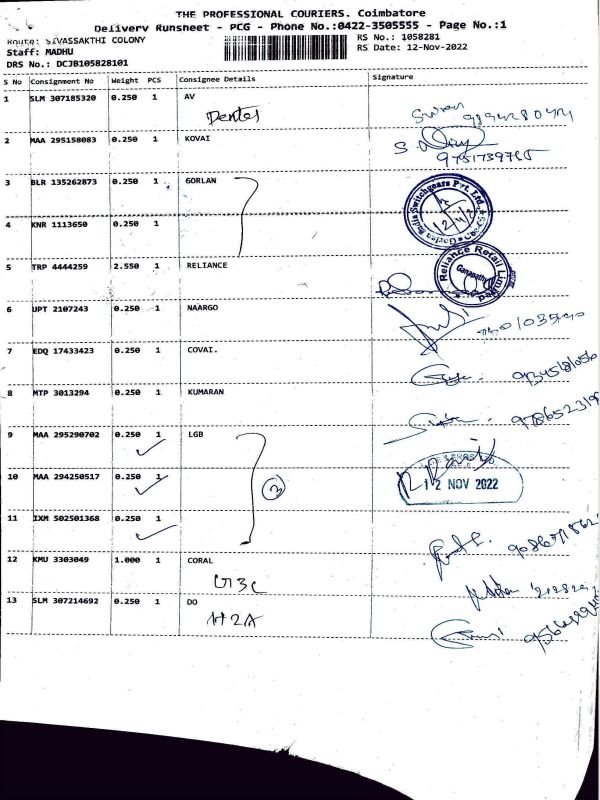 THE PROFESSIONAL COURIERS. Coimbatore
Delivery Runsheet - PCG - Phone No.:0422-3505555 - Page No.:1
Route: SIVASSAKTHI COLONY
RS No.: 1058281
Staff: MADHU
RS Date: 12-Nov-2022
DRS No.: DCJB105828101
S No Consignment No Weight PCS Consignee Details Signature
1 SLM 307185320 0.250 1 AV
Dentes
2 MAA 295158083 0.250 1 KOVAI
3 BLR 135262873 0.250 1 GORLAN
4 KNR 1113650 0.250 1
5 TRP 4444259 2.550 1 RELIANCE
Reliance Retail Limited
Ganapathy
6 UPT 2107243 0.250 1 NAARGO
7 EDQ 17433423 0.250 1 COVAI.
8 MTP 3013294 0.250 1 KUMARAN
9 MAA 295290702 0.250 1 LGB
10 MAA 294250517 0.250 1
3
12 NOV 2022
11 IXM 502501368 0.250 1
12 KMU 3303049 1.000 1 CORAL
G3C
13 SLM 307214692 0.250 1 DO
H2A